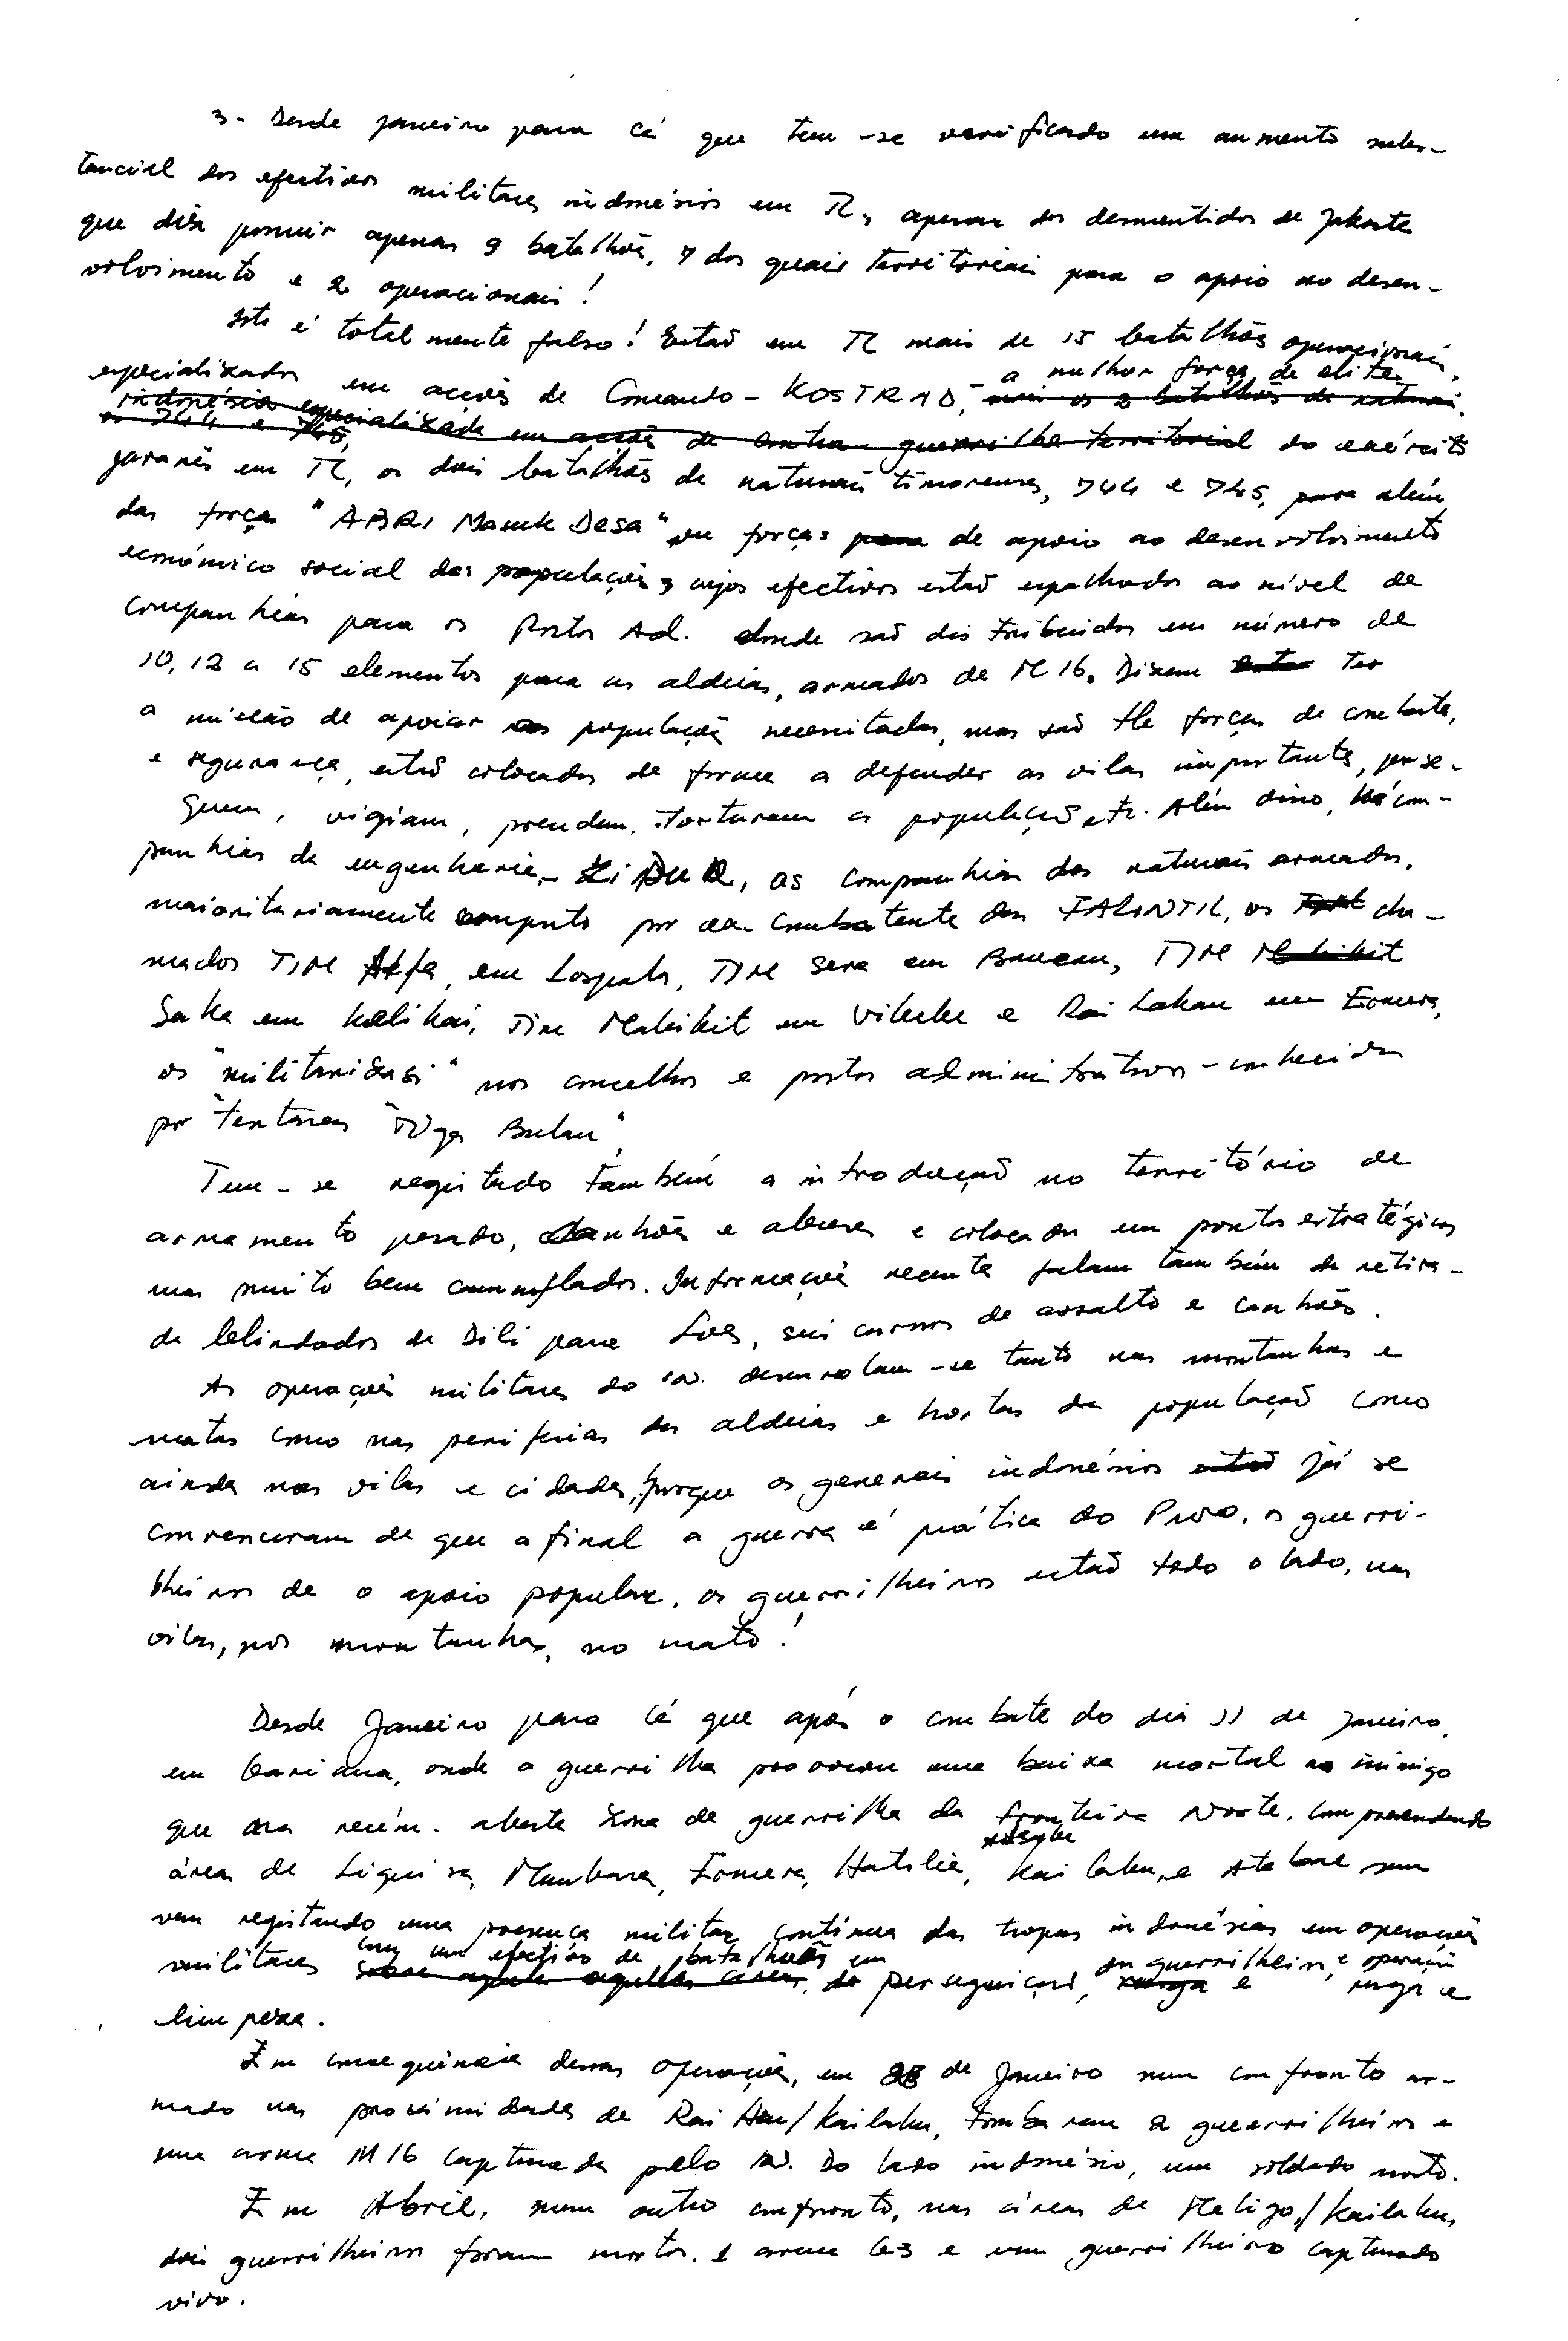 3- Desde janeiro para cá que tem-se verificado um aumento subs-
tancial dos efectivos militares indonésios em TL, apesar dos desmentidos de Jakarta
que diz possuir apenas 9 batalhões, 7 dos quais territoriais para o apoio ao desen-
volvimento e 2 operacionais!
Isto é totalmente falso! Estão em TL mais de 15 batalhões operacionais,
especializados em acções de Comando - KOSTRAD, - a melhor força de elite
mais os 2 batalhões de naturais,
os 744 e 745,
indonésia especializada em acções de contra-guerrilha territorial do exército
javanês em TL, os dois batalhões de naturais timorenses, 744 e 745, para além
das forças "ABRI Masuk Desa" ou forças para de apoio ao desenvolvimento
económico social das populações, cujos efectivos estão espalhados ao nível de
Companhias para os Postos Ad. donde são distribuidos em número de
10, 12 a 15 elementos para as aldeias, armados de M16. Dizem ter
a missão de apoiar as populações necessitadas, mas são forças de combate,
e segurança, estão colocados de forma a defender as vilas importantes, perse-
guem, vigiam, prendem, torturam a população, etc. Além disso, há com-
panhias de engenharia - ZiPUR, as companhias dos naturais armados,
maioritariamente composto por ex-combatente das FALINTIL, os cha-
mados TIM Alfa, em Lospalos, TIM Sera em Baucau, TIM Makikit
Saka em Kelikai, Tim Makikit em Vikeke e Rai Lakan em Ermera,
os "militarizasi" nos concelhos e postos administrativos - conhecidos
por "tentaras "Tiga Bulan".
Tem-se registado também a introdução no território de
armamento pesado, canhões e obuses e colocados em pontos estratégicos
mas muito bem camuflados. Informações recentes falam também da retira-
de blindados de Dili para Loes, seis carros de assalto e canhões.
As operações militares do in. desenrolam-se tanto nas montanhas e
matas como nas periferias das aldeias e hortas da população como
ainda nas vilas e cidades, porque os generais indonésios estão já se
convenceram de que afinal a guerra é prática do Povo, os guerri-
lheiros de o apoio popular, os guerrilheiros estão todo o lado, nas
vilas, nas montanhas, no mato!
Desde Janeiro para cá que após o combate do dia 11 de janeiro,
em Gariana, onde a guerrilha provocou uma baixa mortal ao inimigo
que era recém-aberta zona de guerrilha da fronteira Norte, compreendendo
área de Liquiça, Maubara, Ermera, Hatolia, Atsabe Kailaku, e Atabae sem
vem registando uma presença militar contínua das tropas indonésias em operações
militares com um efectivo de batalhões em perseguição, aos guerrilheiros, e operações rusga e
limpeza.
Em consequência dessas operações, em 28 de Janeiro num confronto ar-
mado nas proximidades de Rai /Kailaku, tombaram 2 guerrilheiros e
uma arma M16 capturada pelo in. Do lado indonésio, um soldado morto.
Em Abril, num outro confronto, nas áreas de Meligo,/Kailaku,
dois guerrilheiros foram mortos. 1 arma G3 e um guerrilheiro capturado
vivo.